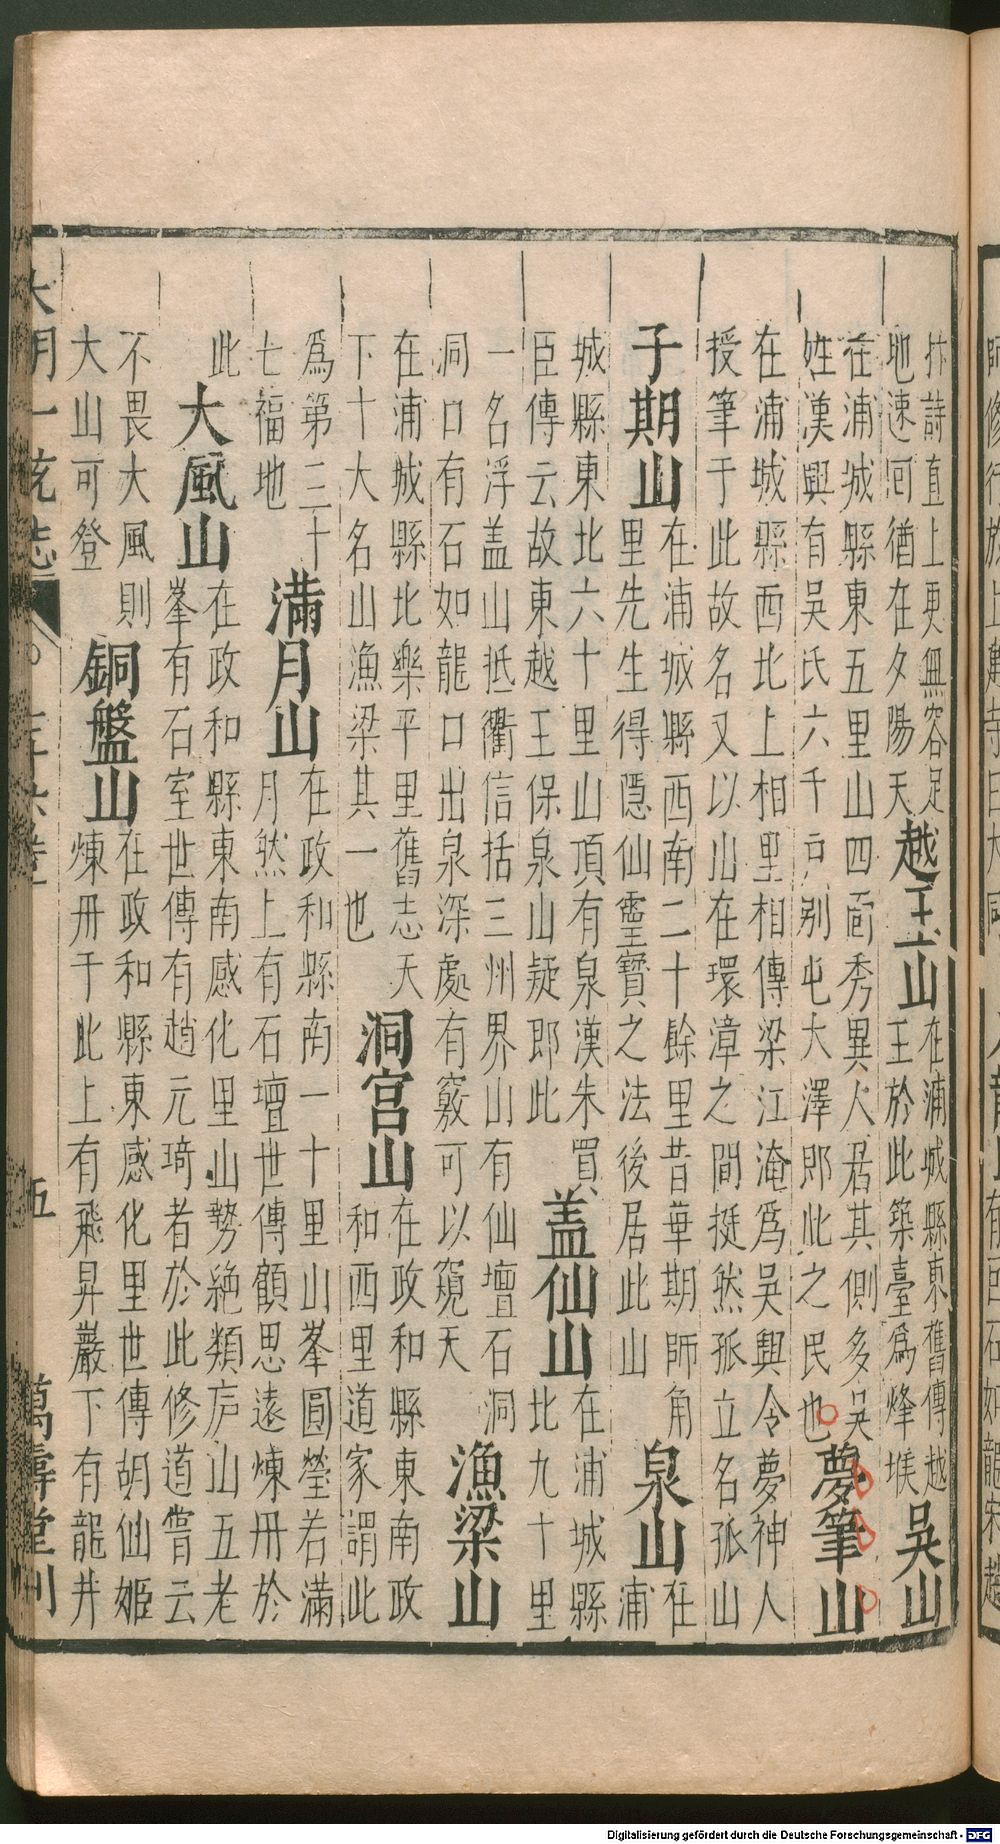 抃詩直上更無容足
地速回猶在夕陽天
越王山
在浦城縣東舊傳越
王於此築臺爲烽堠
吳山
在浦城縣東五里山四面秀異人居其側多吳
姓漢興有吳氏六千戶別屯大澤即此之民也
夢筆山
在浦城縣西北上相里相傳梁江淹爲吳興令夢神人
授筆于此故名又以山在環漳之間挺然孤立名孤山
子期山
在浦城縣西南二十餘里昔華期師角
里先生得隱仙靈寶之法後居此山
泉山
在
浦
城縣東北六十里山頂有泉漢朱買
臣傳云故東越王保泉山疑即此
盖仙山
在浦城縣
北九十里
一名浮盖山抵衢信括三州界山有仙壇石洞
洞口有石如龍口出泉深處有竅可以窺天
漁梁山
在浦城縣北樂平里舊志天
下十大名山漁梁其一也
洞宫山
在政和縣東南政
和西里道家謂此
爲第三十
七福地
滿月山
在政和縣南一十里山峯圓瑩若滿
月然上有石壇世傳顧思遠煉丹於
此
大風山
在政和縣東南感化里山勢絶類庐山五老
峯有石室世傳有趙元琦者於此修道嘗云
不畏大風則
大山可登
銅盤山
在政和縣東感化里世傳胡仙姬
煉丹于此上有飛昇巖下有龍井
大明一統志
七十六卷
五
萬壽堂刊
Digitalisierung gefördert durch die Deutsche Forschungsgemeinschaft - DFG